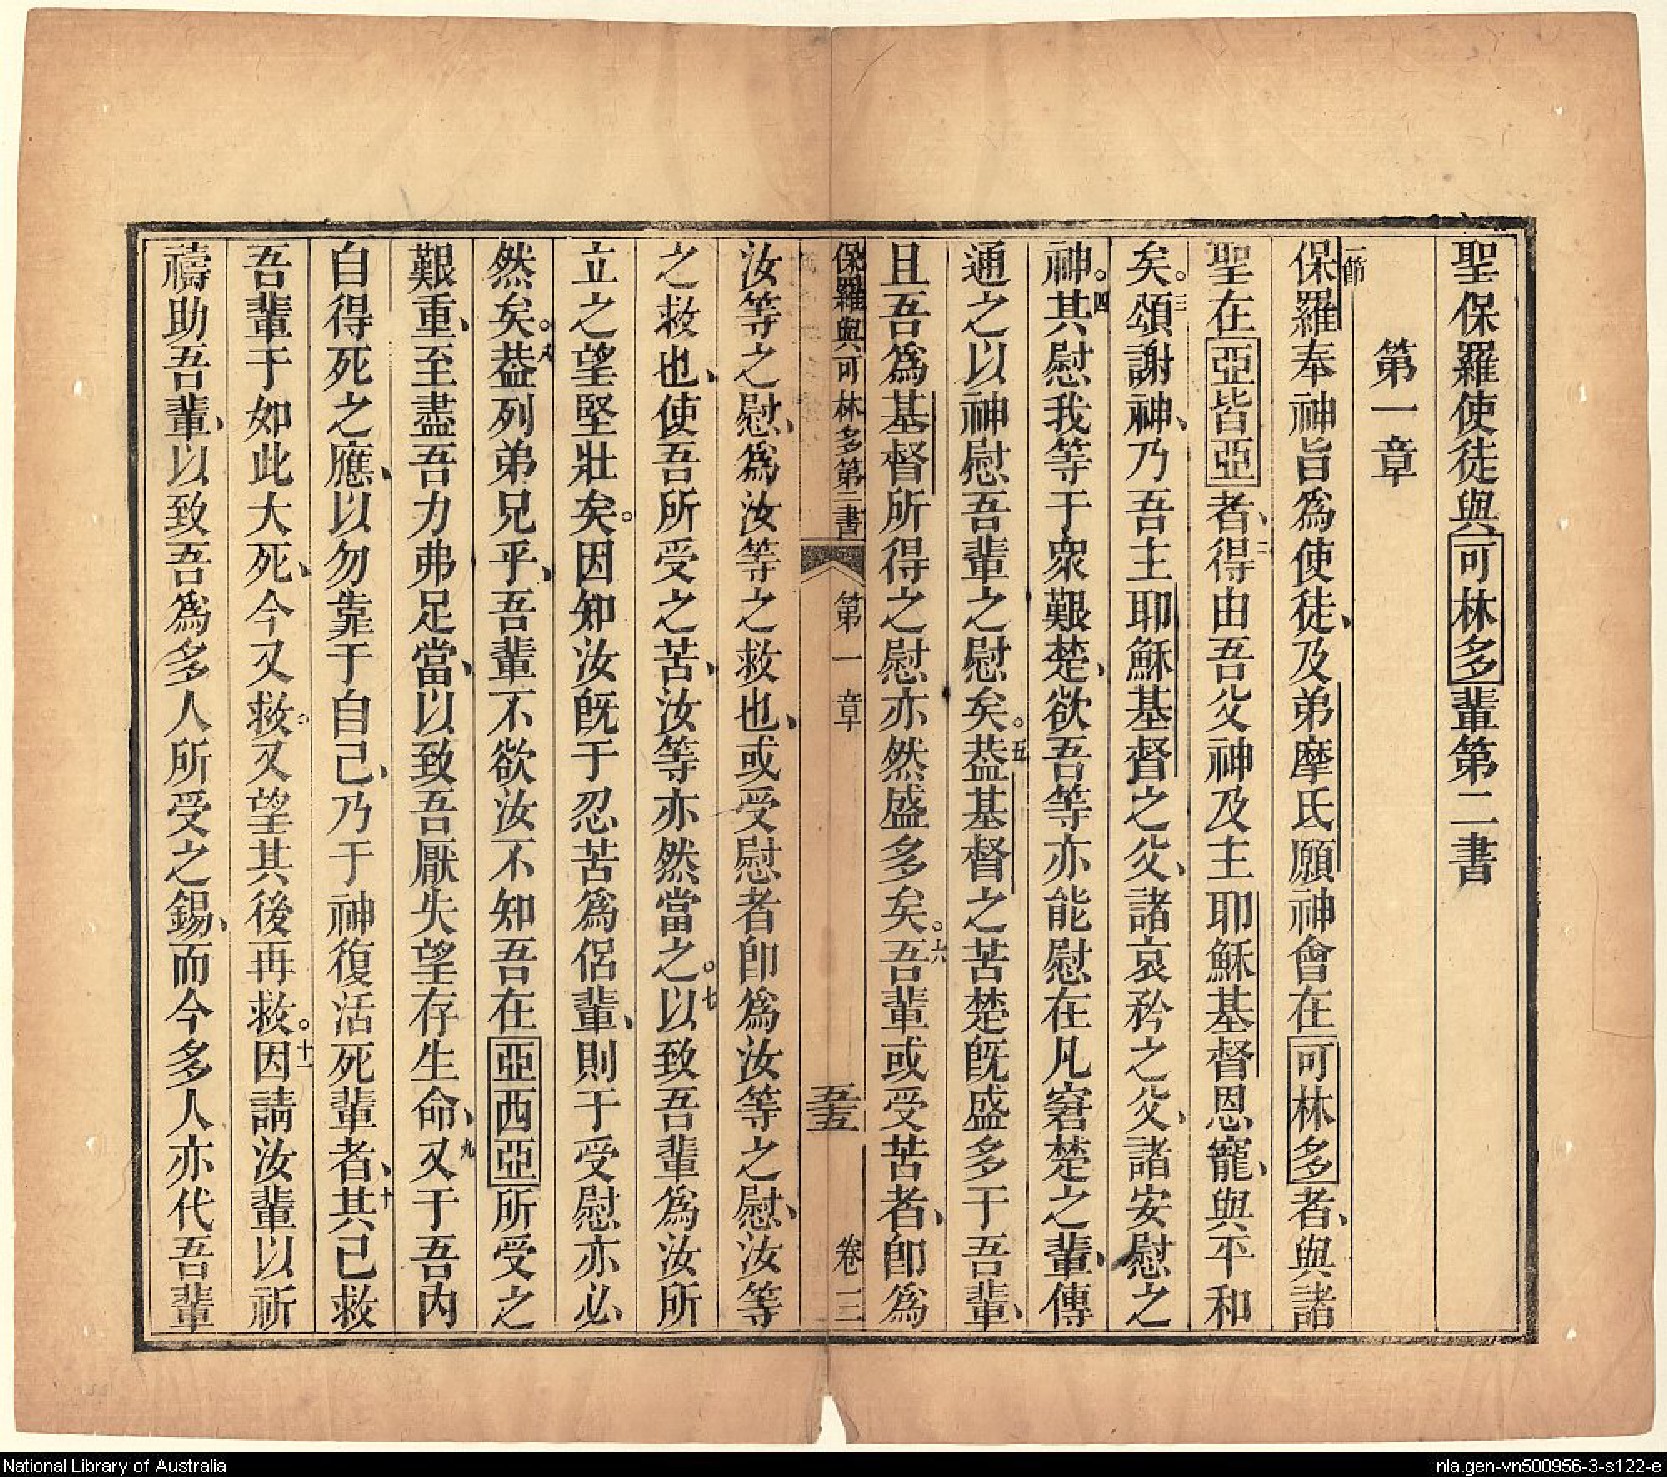 聖保羅使徒與可林多輩第二書
第一章
一節
保羅奉神旨爲使徒、及弟摩氏願神會在可林多者、與諸
聖在亞皆亞者、二得由吾父神及主耶穌基督恩寵、與平和
矣。三頌謝神、乃吾主耶穌基督之父、諸哀矜之父、諸安慰之
神。四其慰我等于衆艱楚、欲吾等亦能慰在凡窘楚之輩、傳
通之以神慰吾輩之慰矣。五葢基督之苦楚旣盛多于吾輩、
且吾爲基督所得之慰亦然盛多矣。六吾輩或受苦者、卽爲
保羅與可林多第二書 第一章 吾五 卷三
汝等之慰、爲汝等之救也、或受慰者卽爲汝等之慰、汝等
之救也、使吾所受之苦、汝等亦然當之。七以致吾輩爲汝所
立之望堅壯矣。因知汝旣于忍苦爲侶輩、則于受慰亦必
然矣。八葢列弟兄乎、吾輩不欲汝不知吾在亞西亞所受之
艱重、至盡吾力弗足當、以致吾厭失望存生命、九又于吾內
自得死之應、以勿靠于自己、乃于神復活死輩者、十其已救
吾輩于如此大死、今又救、又望其後再救。十一因請汝輩以祈
禱助吾輩、以致吾爲多人所受之錫、而今多人亦代吾輩
National Library of Australia
nla.gen-vn500956-3-s122-e